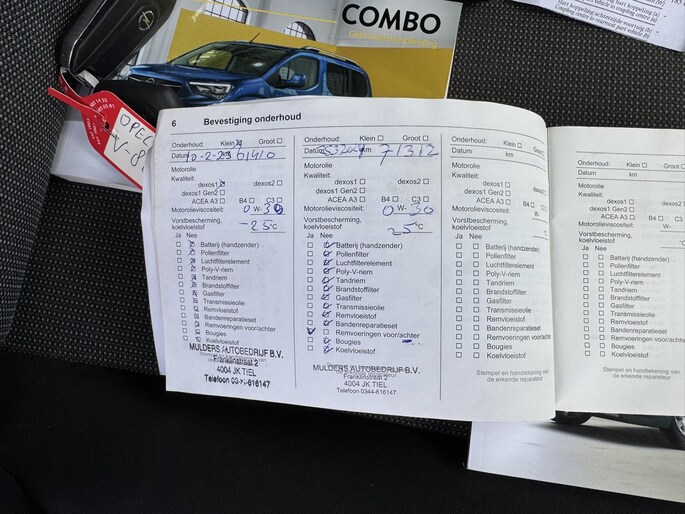 COMBO
OPEL
6 Bevestiging onderhoud
Onderhoud: Klein ☒ Groot ☐
Datum 10-2-23 61410
Motorolie
Kwaliteit:
dexos1 ☑ dexos2 ☐
dexos1 Gen2 ☐
ACEA A3 ☐ B4 ☐ C3 ☐
Motorolieviscositeit: 0 W- 30
Vorstbescherming,
koelvloeistof -25 °C
Ja Nee
Batterij (handzender)
Pollenfilter
Luchtfilterelement
Poly-V-riem
Tandriem
Brandstoffilter
Gasfilter
Transmissieolie
Remvloeistof
Bandenreparatieset
Remvoeringen voor/achter
Bougies
Koelvloeistof
MULDERS AUTOBEDRIJF B.V.
Franklinstraat 2
4004 JK TIEL
Telefoon 0344-616147
Onderhoud: Klein ☐ Groot ☐
Datum km 71312
Motorolie
Kwaliteit:
dexos1 ☐ dexos2 ☐
dexos1 Gen2 ☐
ACEA A3 ☐ B4 ☐ C3 ☐
Motorolieviscositeit: 0 W- 30
Vorstbescherming,
koelvloeistof -25 °C
Ja Nee
Batterij (handzender)
Pollenfilter
Luchtfilterelement
Poly-V-riem
Tandriem
Brandstoffilter
Gasfilter
Transmissieolie
Remvloeistof
Bandenreparatieset
Remvoeringen voor/achter
Bougies
Koelvloeistof
MULDERS AUTOBEDRIJF B.V.
Franklinstraat 2
4004 JK TIEL
Telefoon 0344-616147
Onderhoud: Klein ☐ Groot ☐
Datum km
Motorolie
Kwaliteit:
dexos1 ☐
dexos1 Gen2 ☐
ACEA A3 ☐ B4 ☐
Motorolieviscositeit: W-
Vorstbescherming,
koelvloeistof
Ja Nee
Batterij (handzender)
Pollenfilter
Luchtfilterelement
Poly-V-riem
Tandriem
Brandstoffilter
Gasfilter
Transmissieolie
Remvloeistof
Bandenreparatieset
Remvoeringen voor/achter
Bougies
Koelvloeistof
Stempel en handtekening van
de erkende reparateur
Onderhoud: Klein ☐ Groot
Datum km
Motorolie
Kwaliteit:
dexos1 ☐
dexos1 Gen2 ☐
ACEA A3 ☐ B4
Motorolieviscositeit: W-
Vorstbescherming,
koelvloeistof
Ja Nee
Batterij (handzender)
Pollenfilter
Luchtfilterelement
Poly-V-riem
Tandriem
Brandstoffilter
Gasfilter
Transmissieolie
Remvloeistof
Bandenreparatieset
Remvoeringen voor/achter
Bougies
Koelvloeistof
Stempel en handtekening van
de erkende reparateur